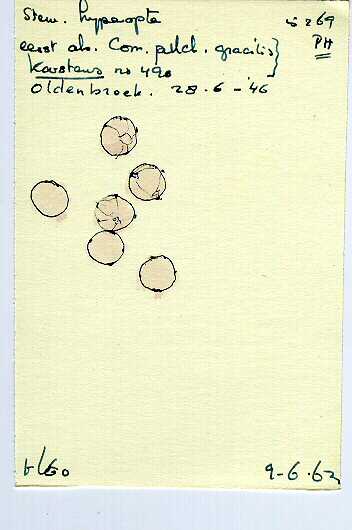 Stem. hyperopta
eerst als. Com. pulch. gracilis}
Karstens no 490
Oldenbroek. 28.6-'46
269
PH
9-6.62